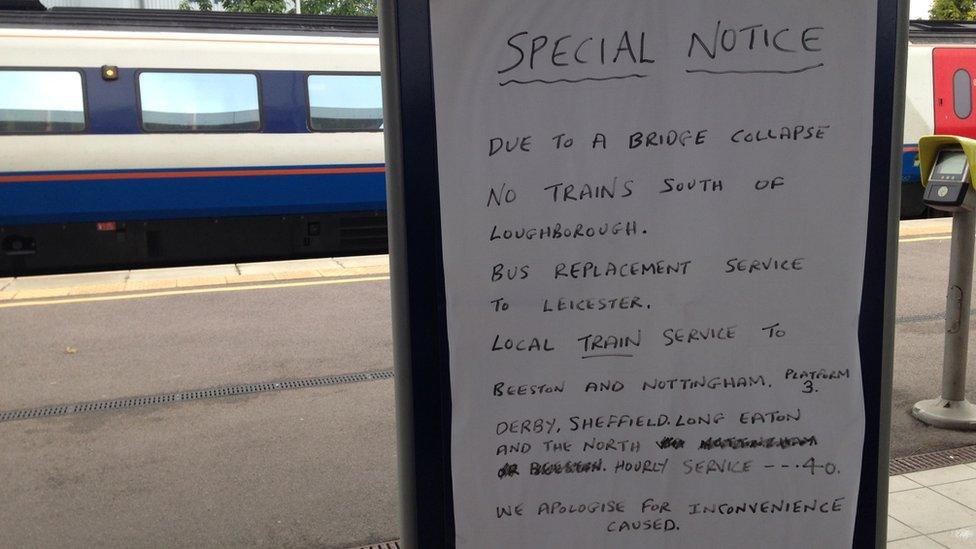 SPECIAL NOTICE
DUE TO A BRIDGE COLLAPSE
NO TRAINS SOUTH OF
LOUGHBOROUGH.
BUS REPLACEMENT SERVICE
TO LEICESTER.
LOCAL TRAIN SERVICE TO
BEESTON AND NOTTINGHAM. PLATFORM 3.
DERBY, SHEFFIELD. LONG EATON
AND THE NORTH
HOURLY SERVICE ---40.
WE APOLOGISE FOR INCONVENIENCE
CAUSED.